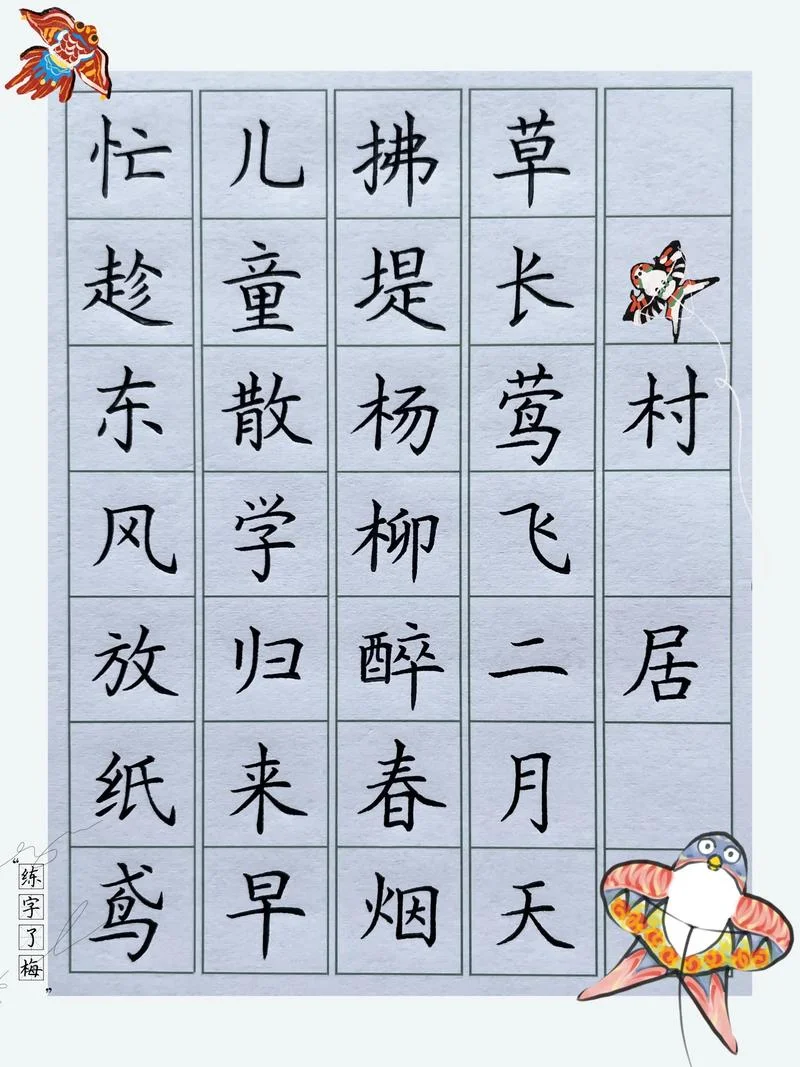 村居
草长莺飞二月天
拂堤杨柳醉春烟
儿童散学归来早
忙趁东风放纸鸢
“练字了梅”